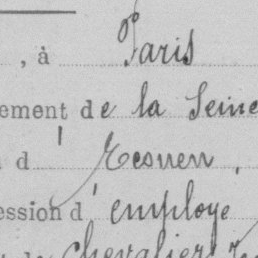 , à Paris
ement de la Seine
d' Ecouen,
ession d' employe
chevalier